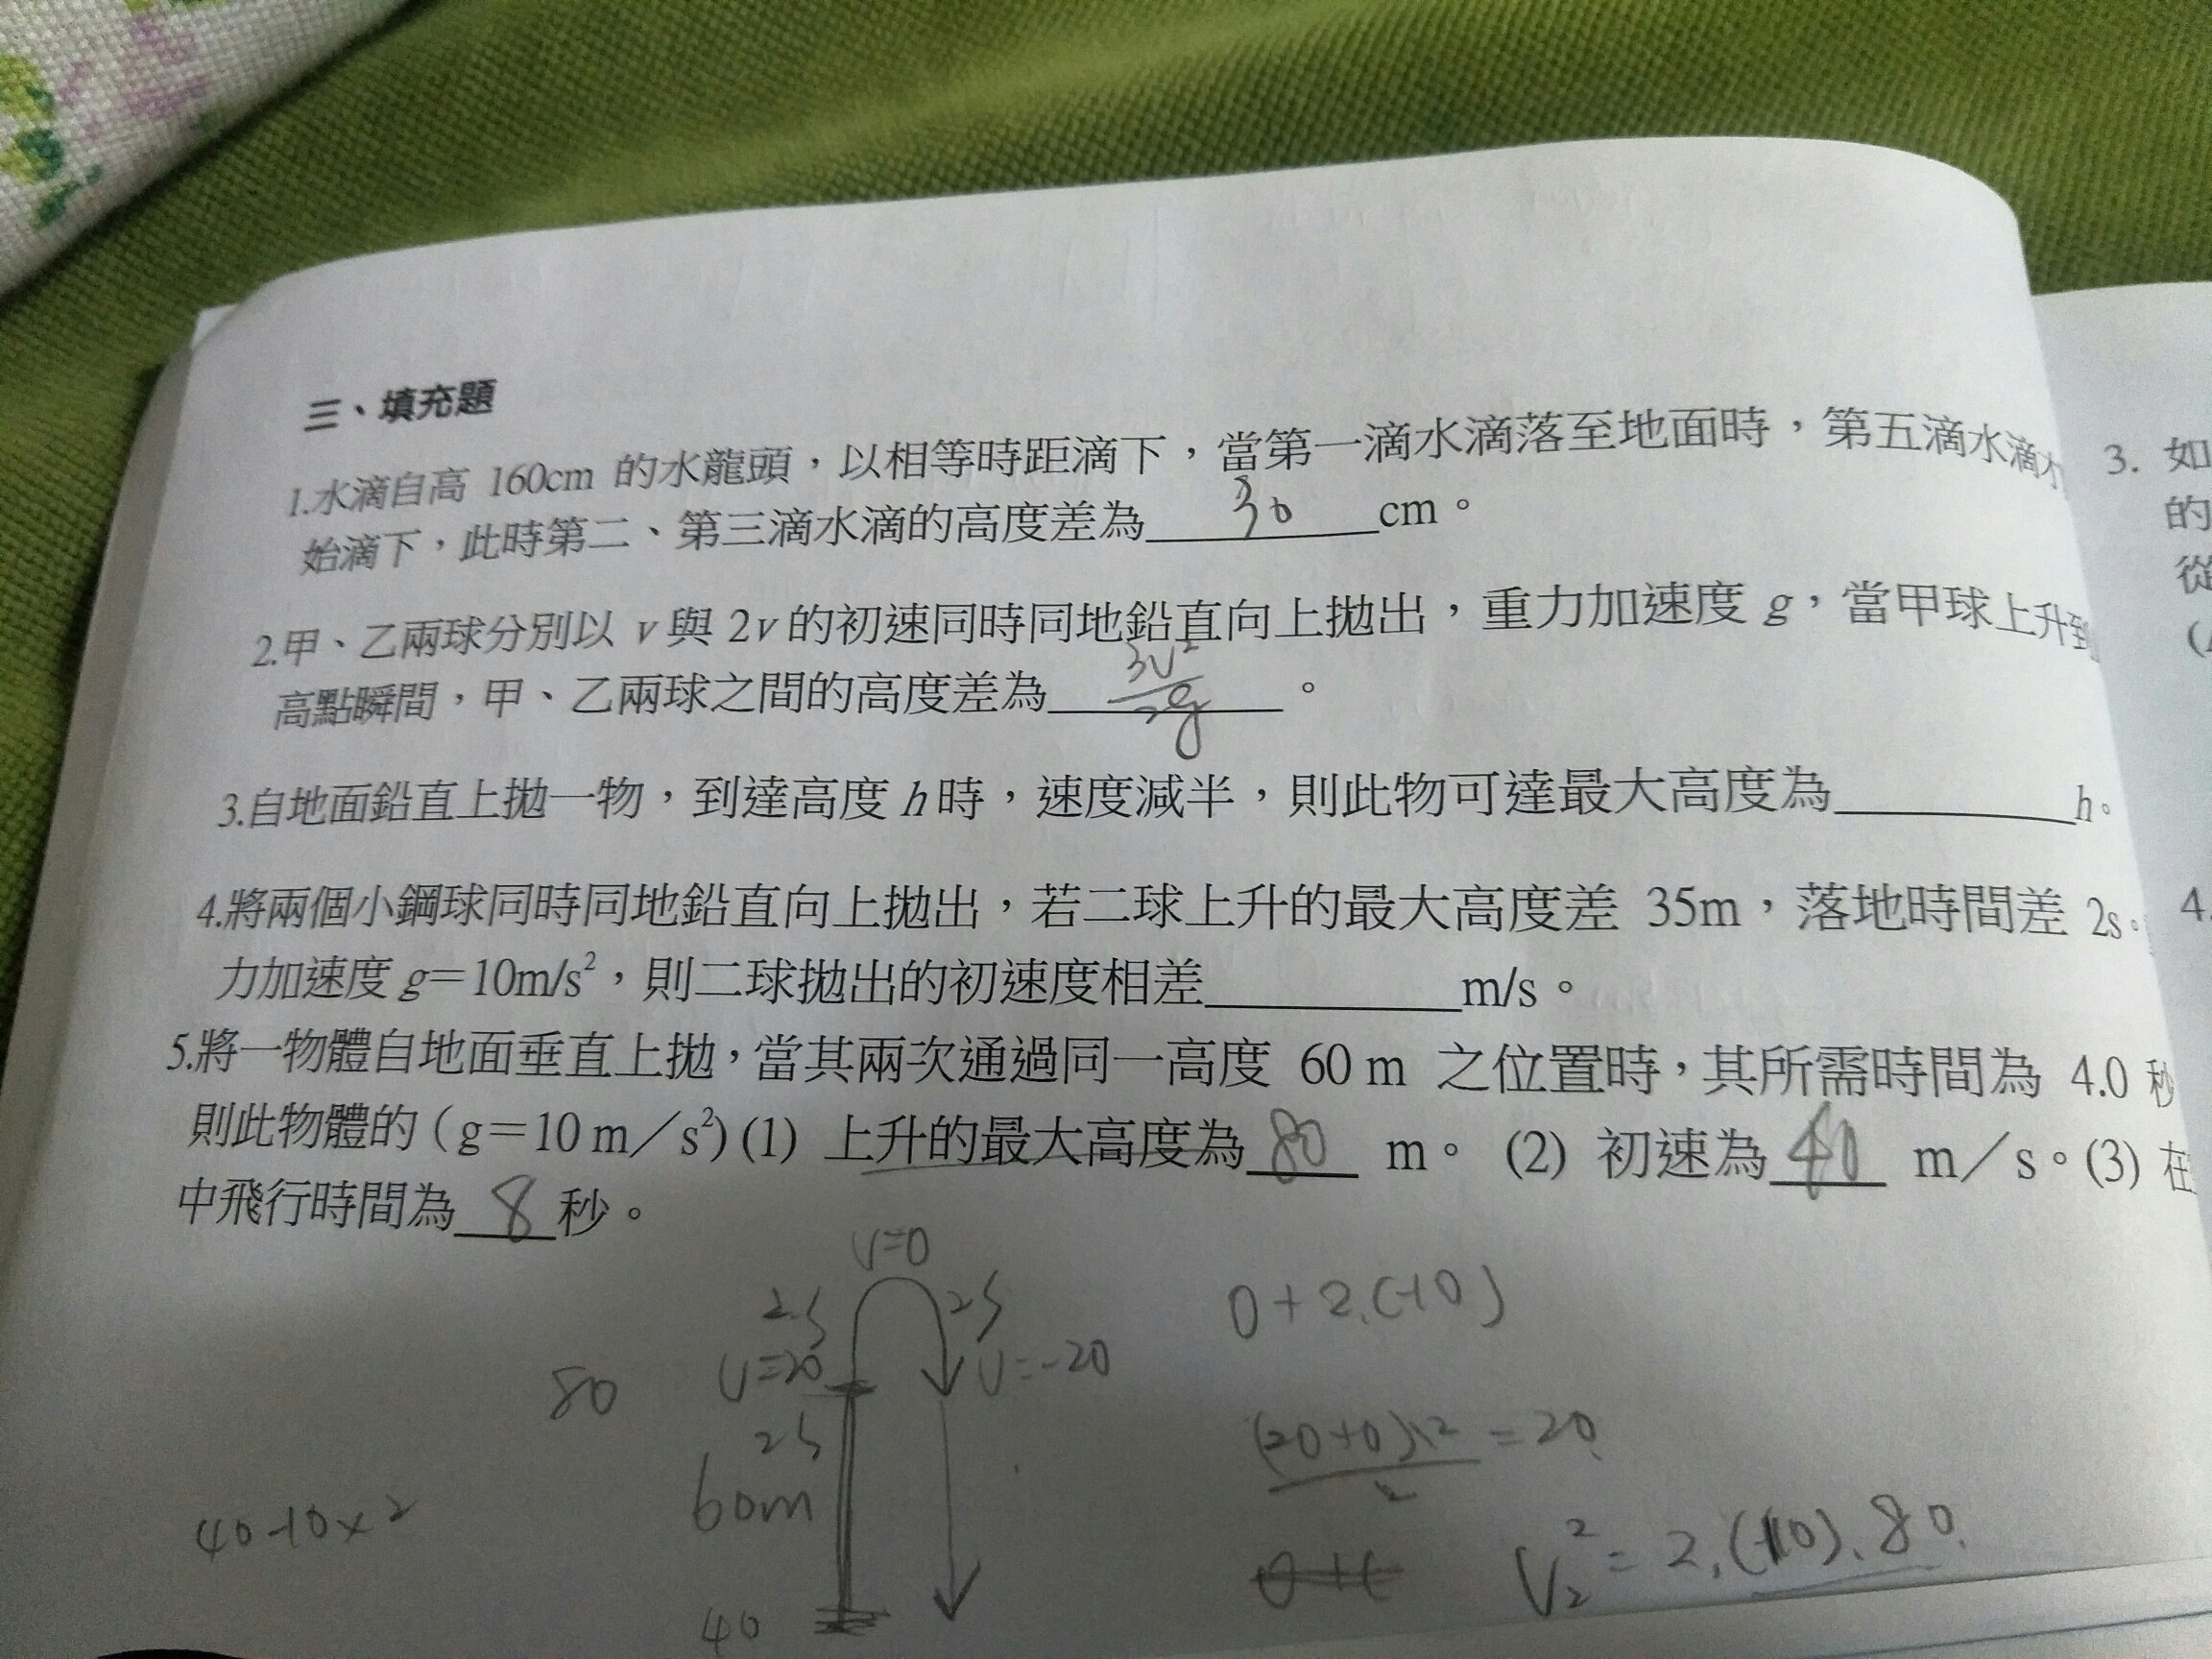 三、填充題
1.水滴自高 160cm 的水龍頭，以相等時距滴下，當第一滴水滴落至地面時，第五滴水滴
始滴下，此時第二、第三滴水滴的高度差為 30 cm。
2.甲、乙兩球分別以 v 與 2v 的初速同時同地鉛直向上拋出，重力加速度 g，當甲球上升到
高點瞬間，甲、乙兩球之間的高度差為 3v²/2g 。
3.自地面鉛直上拋一物，到達高度 h 時，速度減半，則此物可達最大高度為______h。
4.將兩個小鋼球同時同地鉛直向上拋出，若二球上升的最大高度差 35m，落地時間差 2s。
力加速度 g＝10m/s²，則二球拋出的初速度相差______m/s。
5.將一物體自地面垂直上拋，當其兩次通過同一高度 60 m 之位置時，其所需時間為 4.0 秒
則此物體的（g＝10 m／s²）(1) 上升的最大高度為 80 m。 (2) 初速為 40 m／s。(3) 在
中飛行時間為 8 秒。
v=0
2s
2s
0+2.(-10)
v=20
v=-20
80
2s
(20+0)×2/2=20
60m
40-10×2
V₂²=2.(-10).80
40
3. 如
的
從
4.